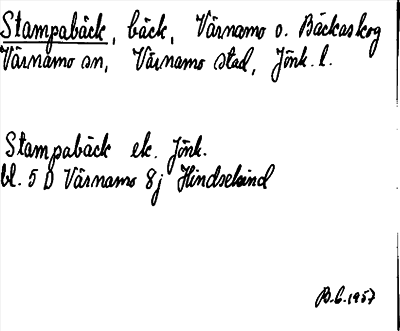 Stampabäck, bäck, Värnamo o. Bäckaskog
Värnamo sn, Värnamo stad, Jönk. l.
Stampabäck ek. Jönk.
bl. 5 D Värnamo 8j Hindsekind
B.L. 1957